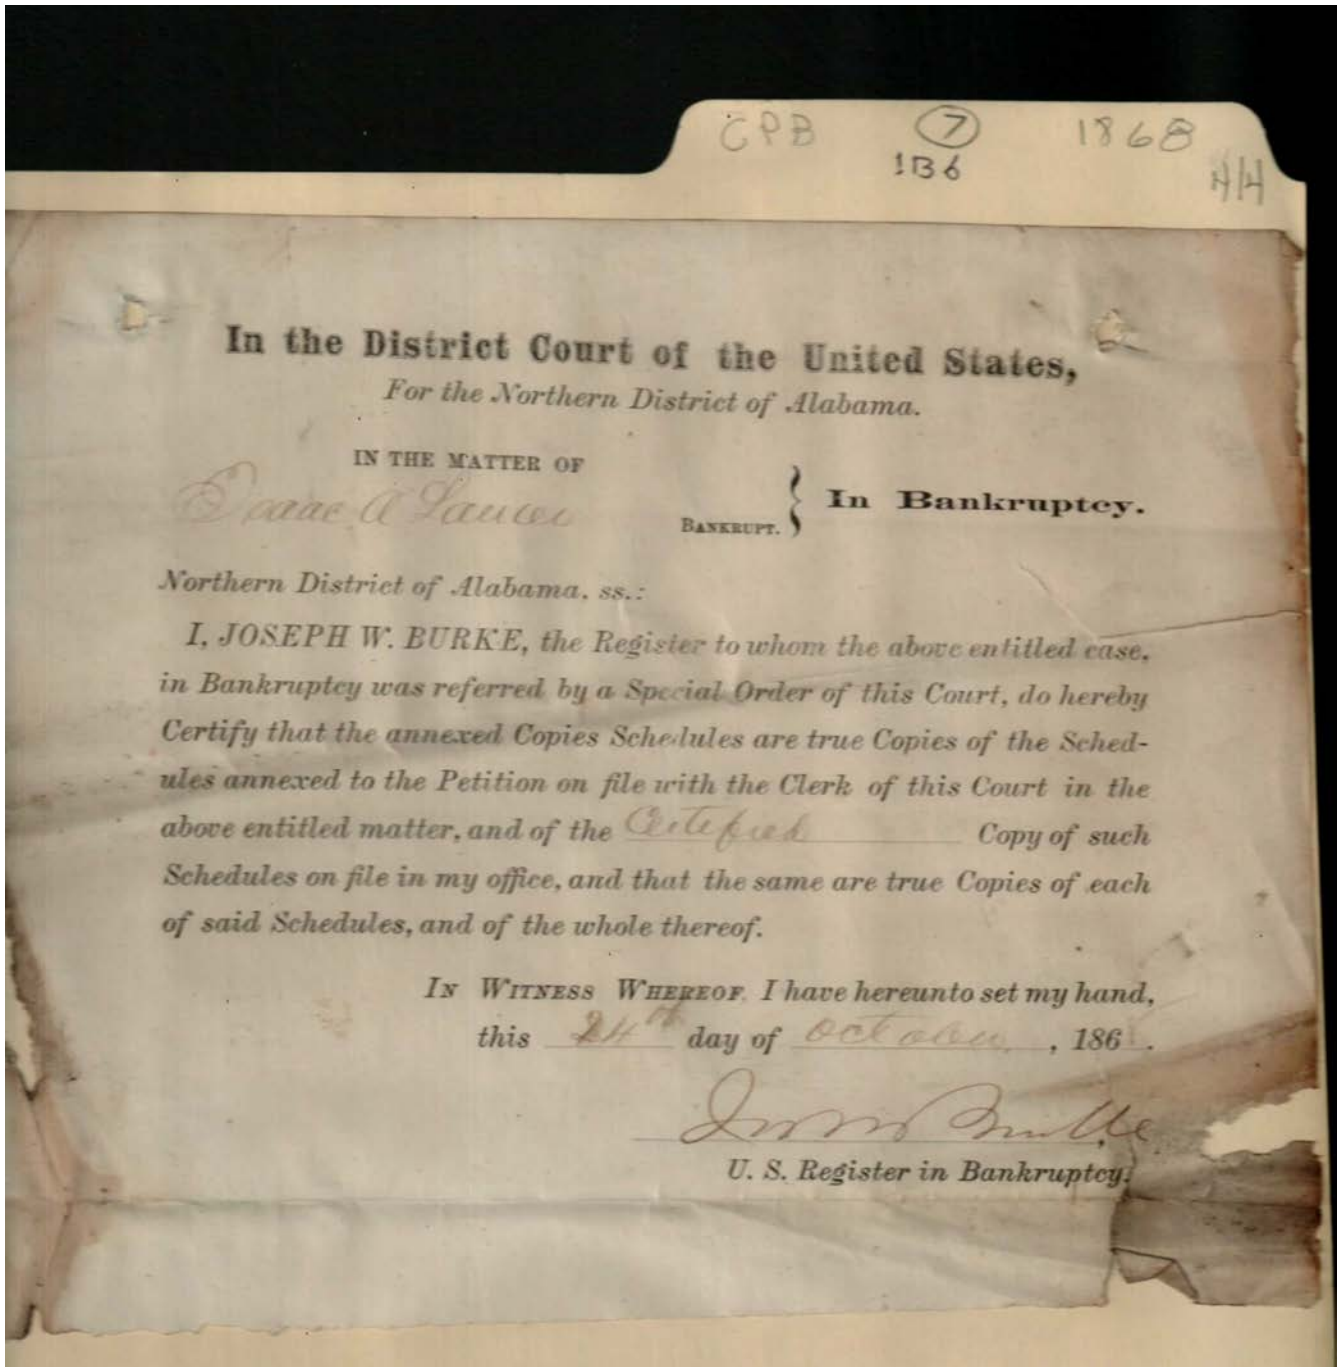 CPB 7 1868
1B6
H/H
In the District Court of the United States,
For the Northern District of Alabama.
IN THE MATTER OF
Isaac A Lanier
BANKRUPT. } In Bankruptcy.
Northern District of Alabama. ss.:
I, JOSEPH W. BURKE, the Register to whom the above entitled case,
in Bankruptcy was referred by a Special Order of this Court, do hereby
Certify that the annexed Copies Schedules are true Copies of the Sched-
ules annexed to the Petition on file with the Clerk of this Court in the
above entitled matter, and of the Certified Copy of such
Schedules on file in my office, and that the same are true Copies of each
of said Schedules, and of the whole thereof.
IN WITNESS WHEREOF, I have hereunto set my hand,
this 24th day of October, 186 .
Jos W Burke
U. S. Register in Bankruptcy.